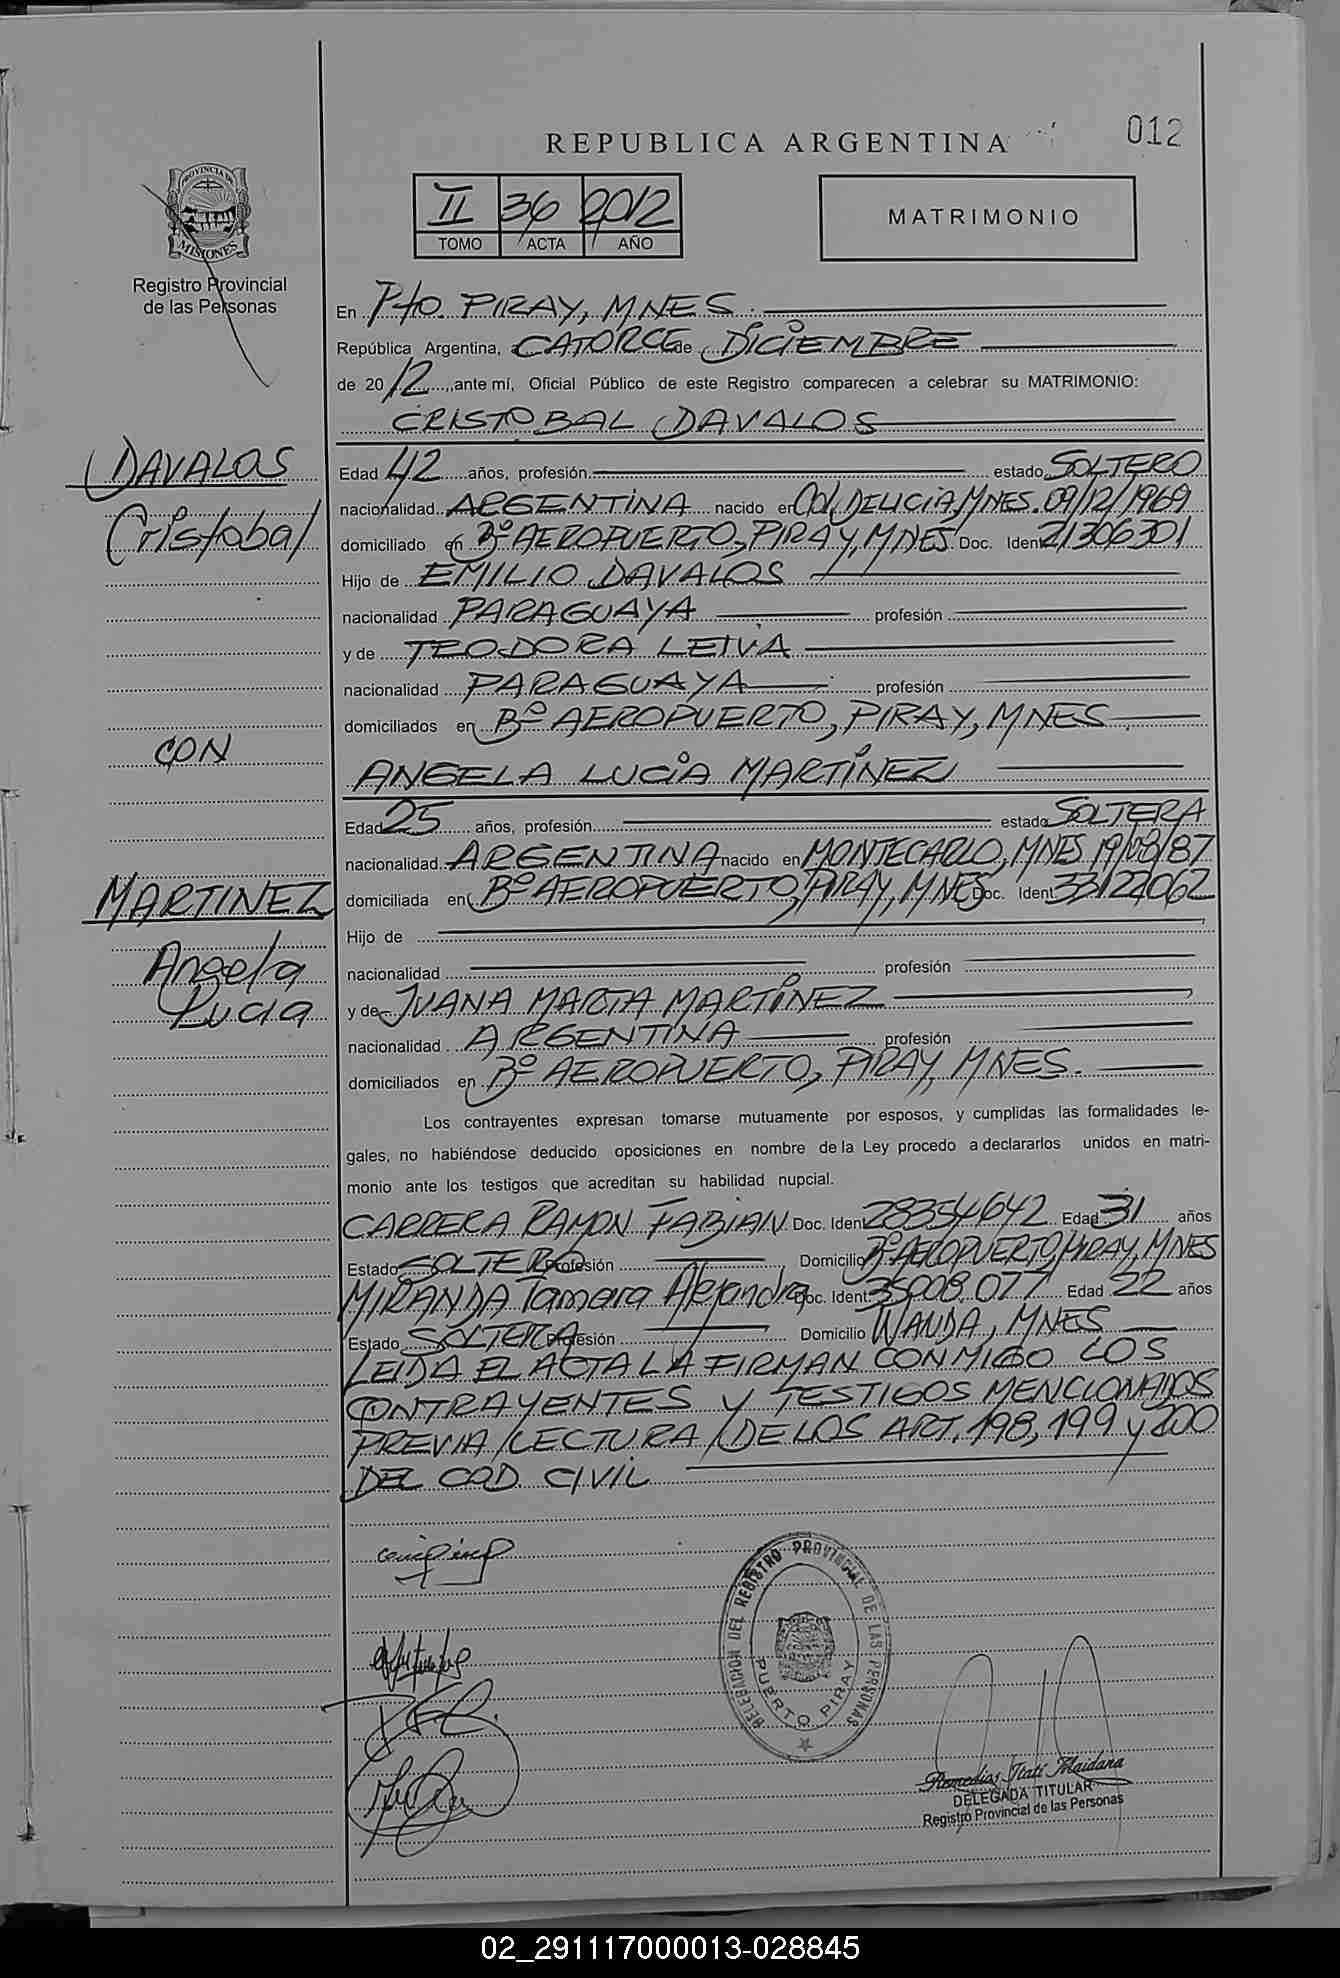 REPUBLICA ARGENTINA
012
PROVINCIA DE
MISIONES
Registro Provincial
de las Personas
II 36 2012
TOMO ACTA AÑO
MATRIMONIO
En Pto. PIRAY, MNES.
República Argentina, a CATORCE de DICIEMBRE
de 2012, ante mí, Oficial Público de este Registro comparecen a celebrar su MATRIMONIO:
CRISTOBAL DAVALOS
DAVALOS
Cristobal
CON
MARTINEZ
Angela
Lucia
Edad 42 años, profesión estado SOLTERO
nacionalidad ARGENTINA nacido en Col. DELICIA, MNES. 09/12/1969
domiciliado en Bº AEROPUERTO, PIRAY, MNES. Doc. Ident. 21306301
Hijo de EMILIO DAVALOS
nacionalidad PARAGUAYA profesión
y de TEODORA LEIVA
nacionalidad PARAGUAYA profesión
domiciliados en Bº AEROPUERTO, PIRAY, MNES
ANGELA LUCIA MARTINEZ
Edad 25 años, profesión estado SOLTERA
nacionalidad ARGENTINA nacido en MONTECARLO, MNES 19/08/87
domiciliada en Bº AEROPUERTO, PIRAY, MNES Doc. Ident. 33122062
Hijo de
nacionalidad profesión
y de JUANA MARTA MARTINEZ
nacionalidad ARGENTINA profesión
domiciliados en Bº AEROPUERTO, PIRAY, MNES.
Los contrayentes expresan tomarse mutuamente por esposos, y cumplidas las formalidades le-
gales, no habiéndose deducido oposiciones en nombre de la Ley procedo a declararlos unidos en matri-
monio ante los testigos que acreditan su habilidad nupcial.
CARRERA RAMON FABIAN Doc. Ident. 28354642 Edad 31 años
Estado SOLTERO Profesión Domicilio Bº AEROPUERTO, PIRAY, MNES
MIRANDA Tamara Alejandra Doc. Ident. 35.008.077 Edad 22 años
Estado SOLTERA Profesión Domicilio WANDA, MNES
LEIDA EL ACTA LA FIRMAN CONMIGO LOS
CONTRAYENTES Y TESTIGOS MENCIONADOS
PREVIA LECTURA DE LOS ART. 198, 199 y 200
DEL COD. CIVIL
DELEGACION DEL REGISTRO PROVINCIAL DE LAS PERSONAS
PUERTO PIRAY
Remedios Itatí Maidana
DELEGADA TITULAR
Registro Provincial de las Personas
02_291117000013-028845